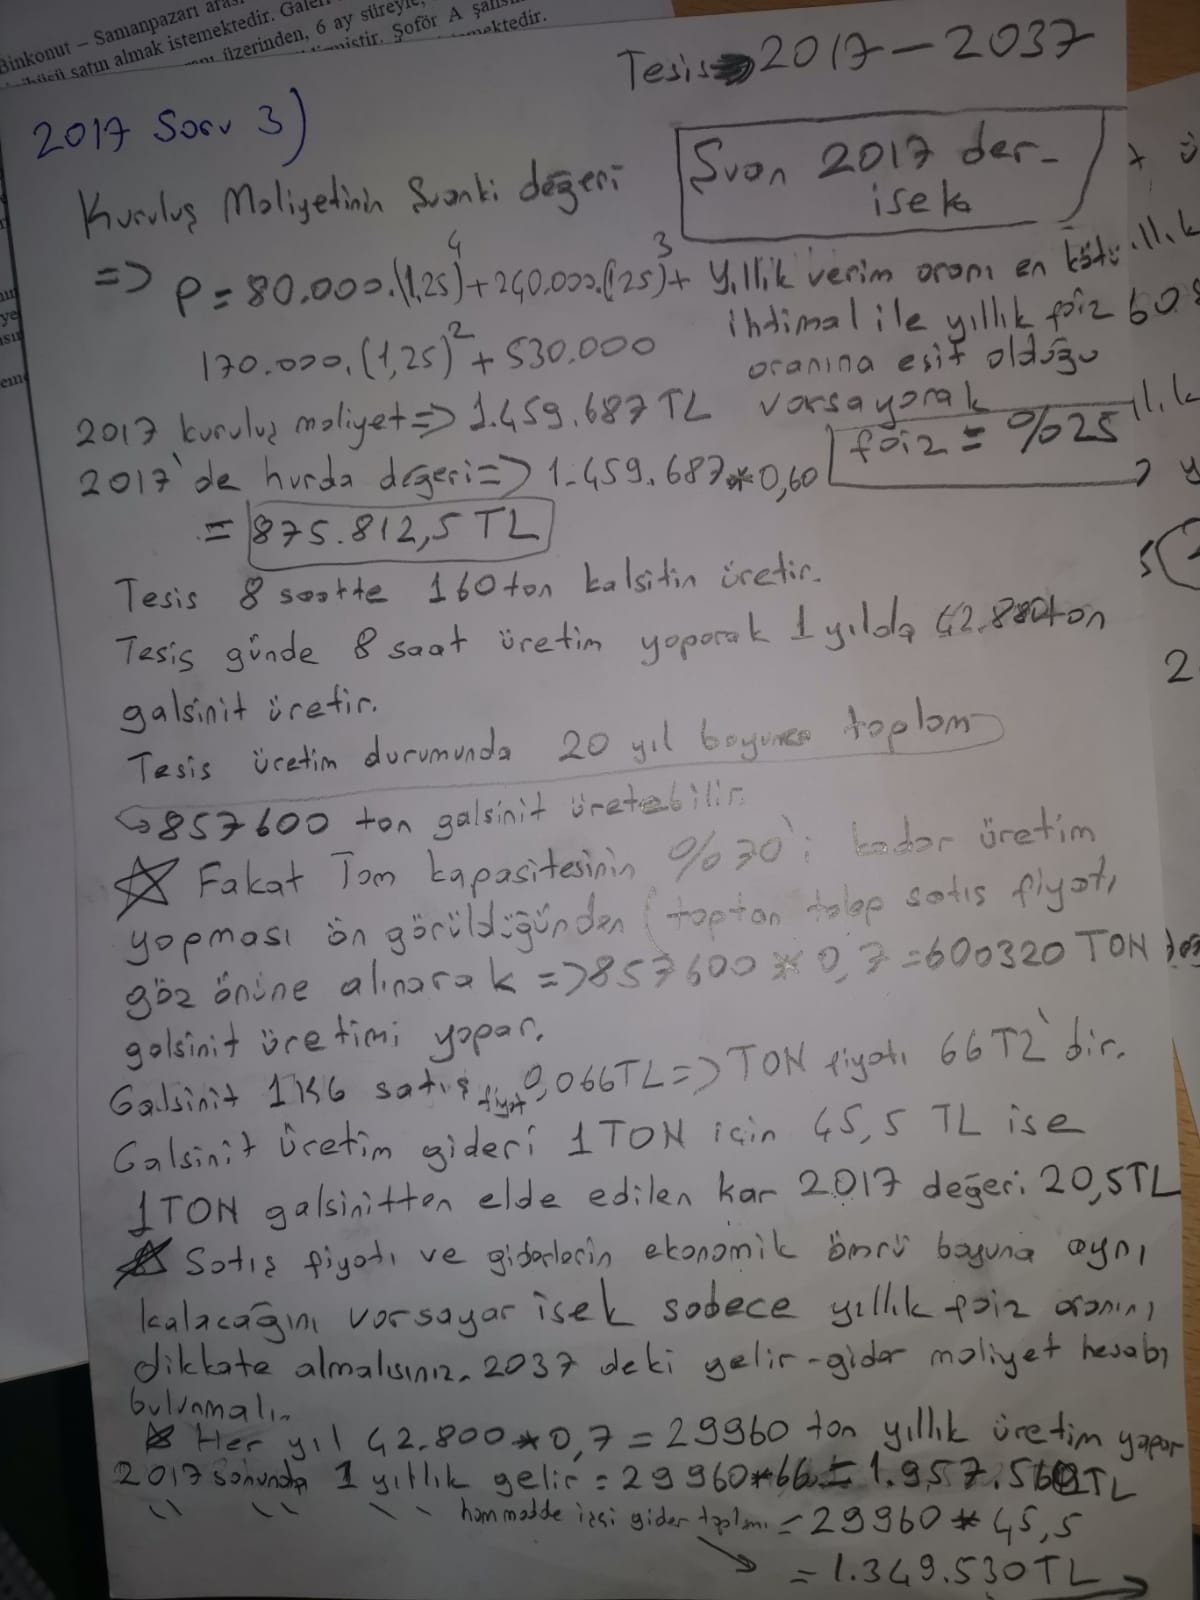 Binkonut – Samanpazarı aras
satın almak istemektedir. Galeri
üzerinden, 6 ay süreyle,
Şoför A şahsı
mektedir.
Tesis 2017-2037
2017 Soru 3)
Şuan 2017 der-
isek
Kuruluş Maliyetinin Şuanki değeri
=> P = 80.000.(1,25)⁴ + 240.000.(1,25)³ +
170.000.(1,25)² + 530.000
Yıllık verim oranı en kötü
ihtimal ile yıllık faiz
oranına eşit olduğu
varsayarak
faiz = %25
2017 kuruluş maliyet => 1.459.687 TL
2017'de hurda değeri => 1.459.687*0,60
= 875.812,5 TL
Tesis 8 saatte 160 ton kalsitin üretir.
Tesis günde 8 saat üretim yaparak 1 yılda 42.880 ton
galsinit üretir.
Tesis üretim durumunda 20 yıl boyunca toplam
857600 ton galsinit üretebilir.
Fakat Tam kapasitesinin %70'i kadar üretim
yapması ön görüldüğünden (toptan talep satış fiyatı
göz önüne alınarak => 857600 * 0,7 = 600320 TON
galsinit üretimi yapar.
Galsinit 1KG satış fiyat 0,066TL => TON fiyatı 66TL'dir.
Galsinit Üretim gideri 1 TON için 45,5 TL ise
1TON galsinitten elde edilen kar 2017 değeri 20,5TL
Satış fiyatı ve giderlerin ekonomik ömrü boyuna aynı
kalacağını varsayar isek sadece yıllık faiz oranını
dikkate almalısınız. 2037 deki gelir-gider maliyet hesabı
bulunmalı.
Her yıl 42.800*0,7 = 29960 ton yıllık üretim yapar
2017 sonunda 1 yıllık gelir = 29960*66 = 1.957.560TL
" " " hammadde işçi gider toplamı = 29960 * 45,5
= 1.349.530 TL